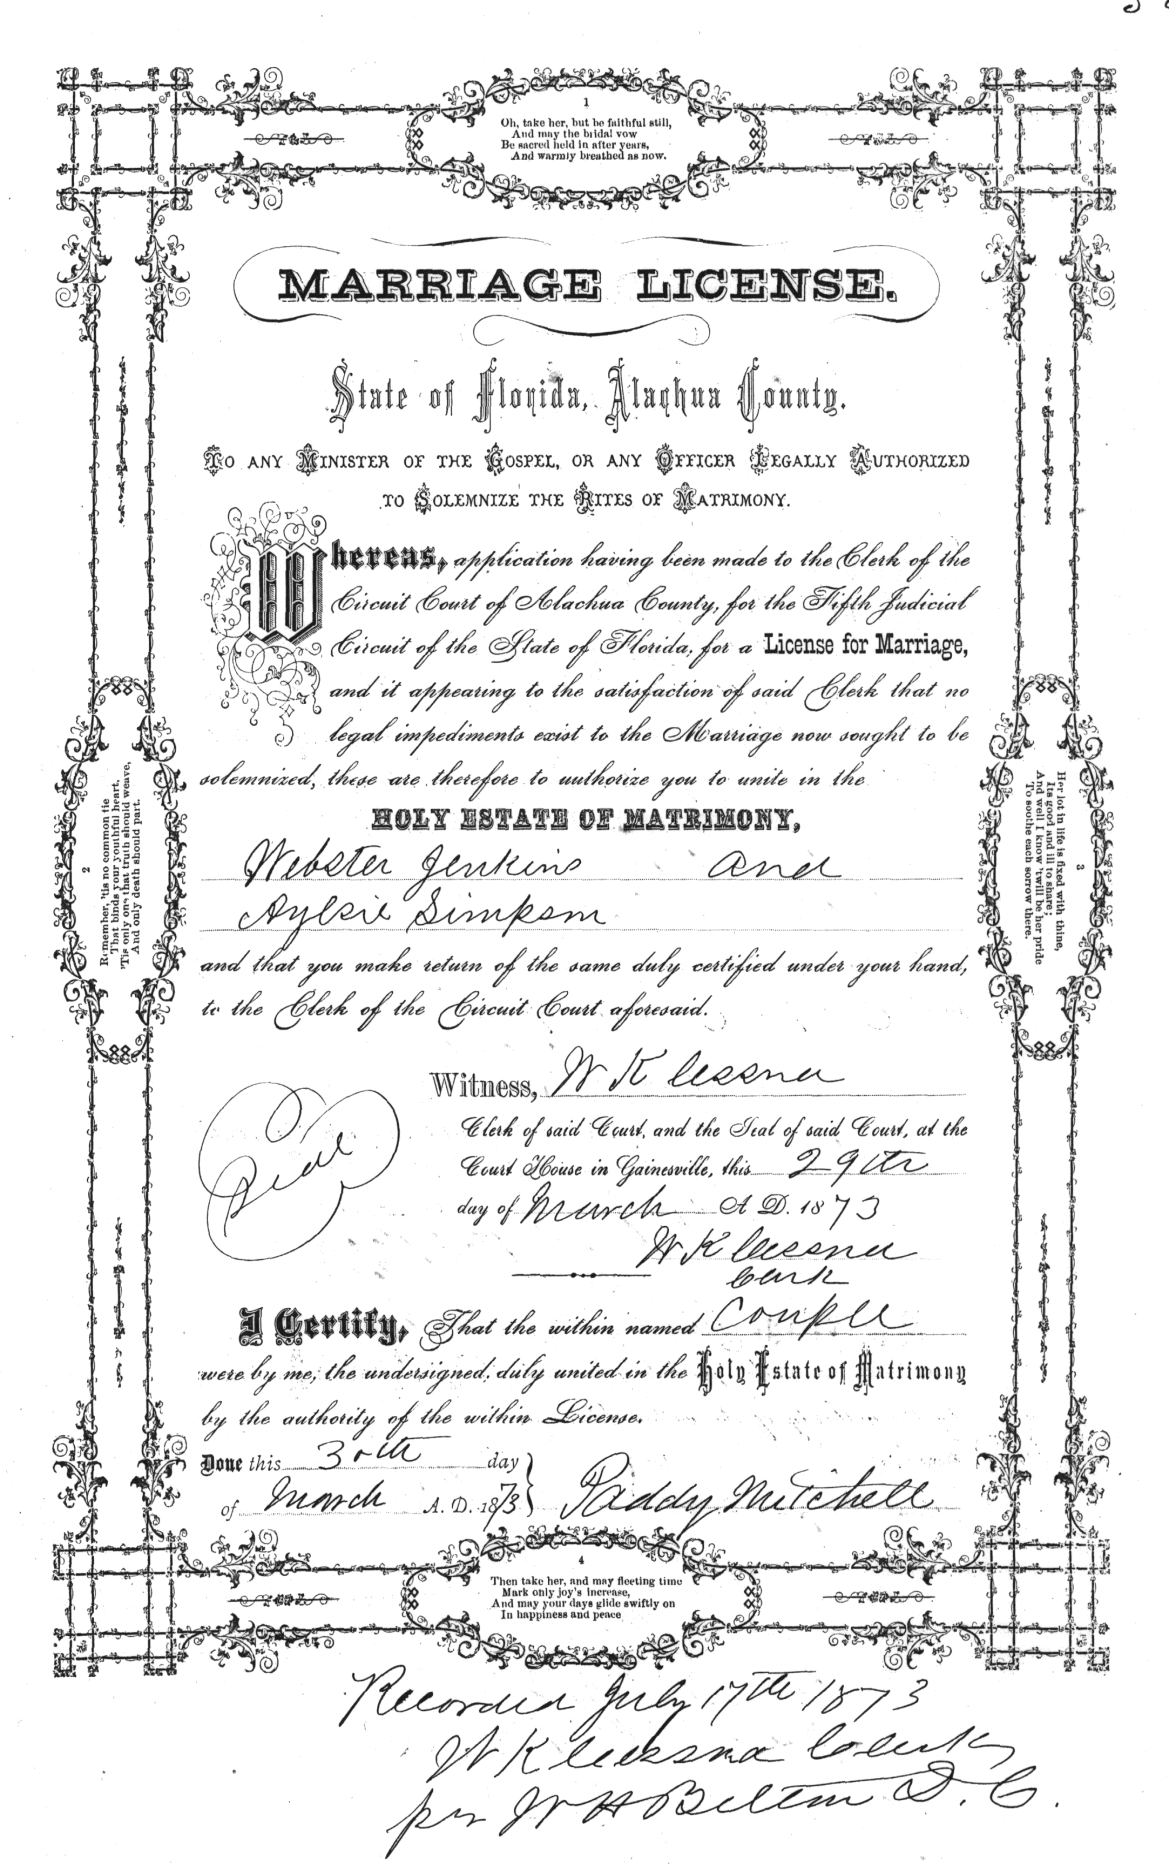 1
Oh, take her, but be faithful still,
And may the bridal vow
Be sacred held in after years,
And warmly breathed as now.
MARRIAGE LICENSE.
State of Florida, Alachua County.
TO ANY MINISTER OF THE GOSPEL, OR ANY OFFICER LEGALLY AUTHORIZED
TO SOLEMNIZE THE RITES OF MATRIMONY.
Whereas, application having been made to the Clerk of the
Circuit Court of Alachua County, for the Fifth Judicial
Circuit of the State of Florida, for a License for Marriage,
and it appearing to the satisfaction of said Clerk that no
legal impediments exist to the Marriage now sought to be
solemnized, these are therefore to authorize you to unite in the
HOLY ESTATE OF MATRIMONY,
Webster Jenkins and
Aylsie Simpson
and that you make return of the same duly certified under your hand,
to the Clerk of the Circuit Court aforesaid.
2
Remember, 'tis no common tie
That binds your youthful heart.
'Tis only one that truth should weave,
And only death should part.
3
Her lot in life is fixed with thine,
Its good and ill to share;
And well I know 'twill be her pride
To soothe each sorrow there.
Witness, W K Cessna
Clerk of said Court, and the Seal of said Court, at the
Court House in Gainesville, this 29th
day of March A D. 1873
Seal
W K Cessna
Clerk
I Certify, That the within named Couple
were by me, the undersigned, duly united in the Holy Estate of Matrimony
by the authority of the within License.
Done this 30th day
of March A. D. 1873
Paddy Mitchell
4
Then take her, and may fleeting time
Mark only joy's increase,
And may your days glide swiftly on
In happiness and peace
Recorded July 17th 1873
W K Cessna Clerk
per W H Belton D. C.